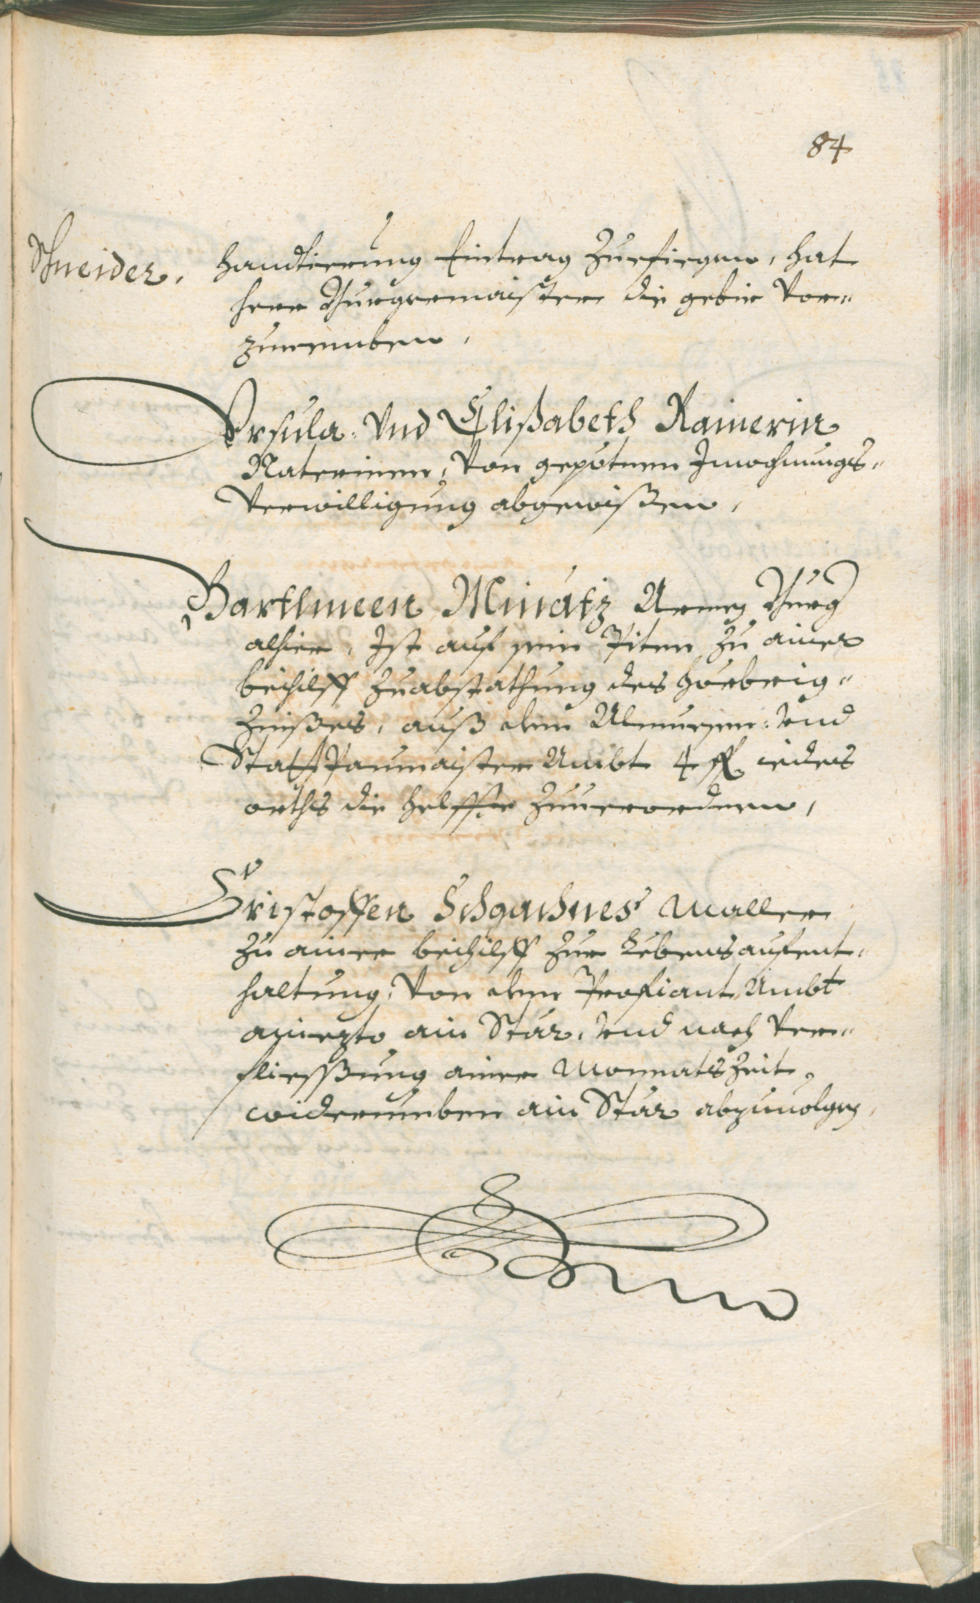 84
Schneider.
handtierung Eintrag Zuefiegen, hat
herr Burgermaister die gebür vor-
zunemben,
Vrsula: Vnd Elißabeth Rainerin
Naterinen, Von gepotnen Inwohnungs-
Verwilligung abgewißen,
Bartlmeen Minätz Armen Burg
alhier, Ist auf sein Piten, zu ainer
beihilff Zuabstathung des herbrig-
Zinßes, auß dem Almuesen: Vnd
Statt Paumaister Ambt 4 fl iedes
orths die helffte Zuuerordnen,
Cristoffen Maller
Zu ainer beihilff Zur Lebensaufent-
haltung, Von dem Profiant Ambt
anyezto ain Stär, Vnd nach Ver-
fliessung ainer Monnats Zeit,
widerumben ain Stär abzuuolgen,